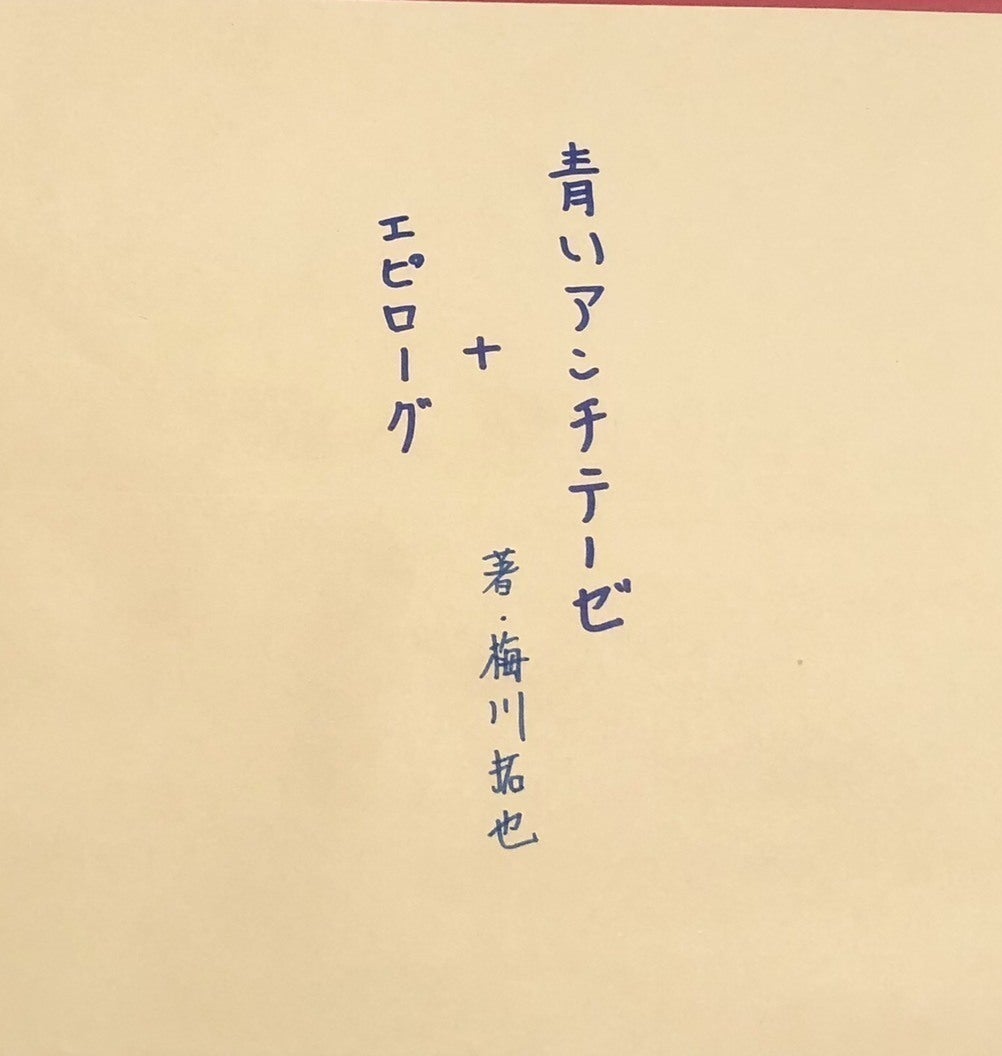 青いアンチテーゼ
+
エピローグ
著・梅川拓也